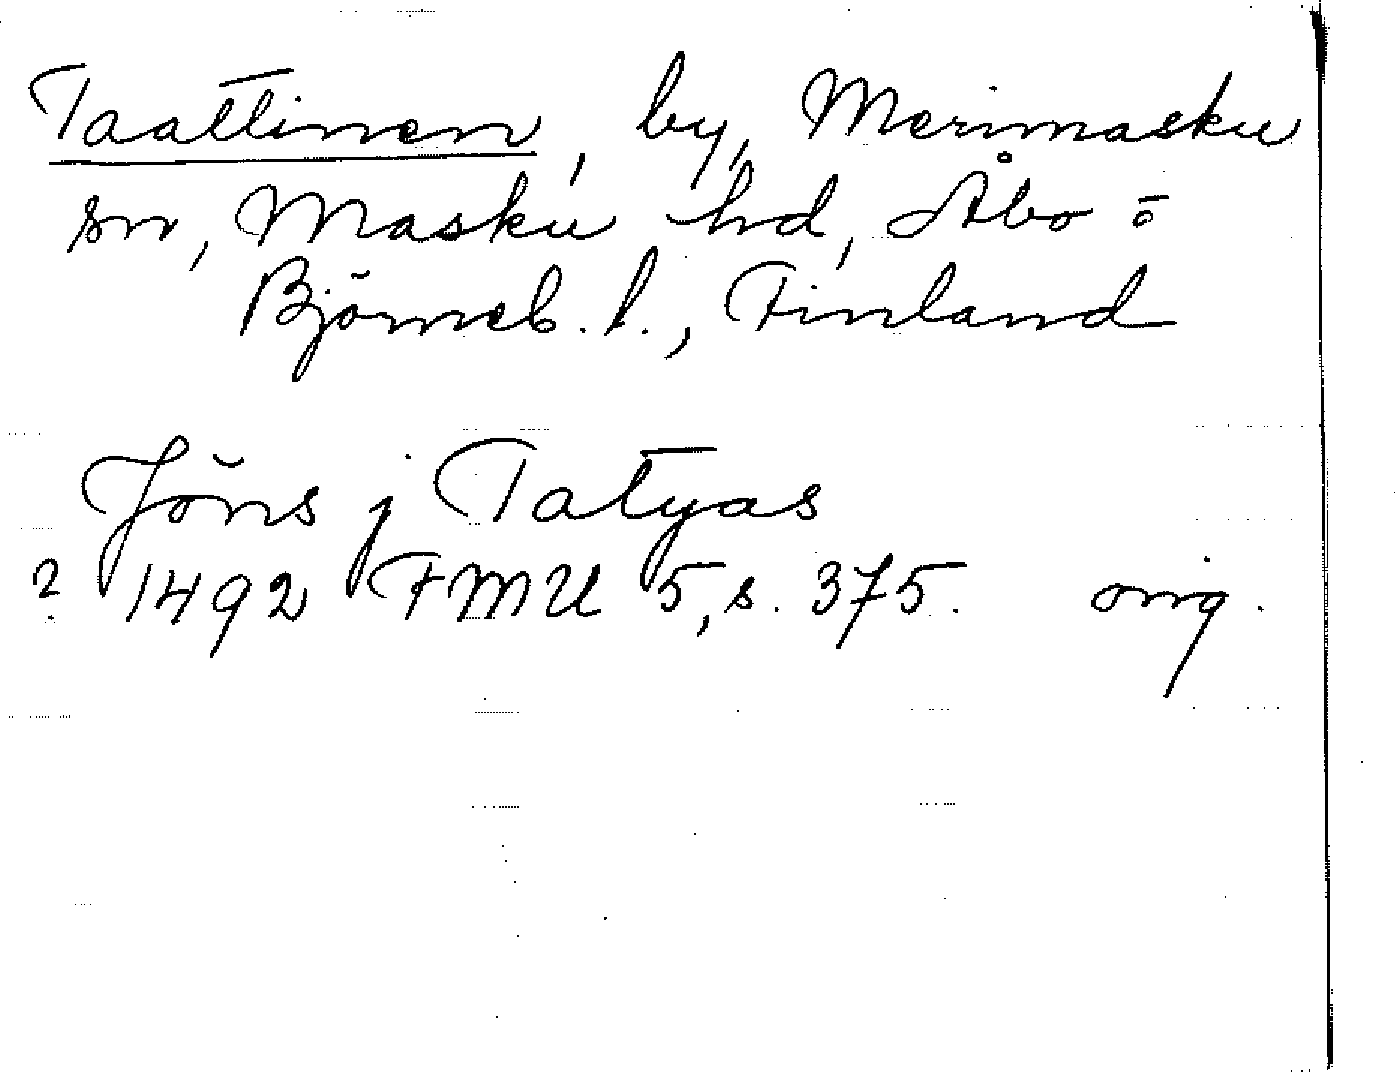 Taattinen, by, Merimasku
sn, Masku hd, Åbo o
Björneb. l., Finland
Jöns j Tatyas
? 1492 FMU 5, s. 375. orig.